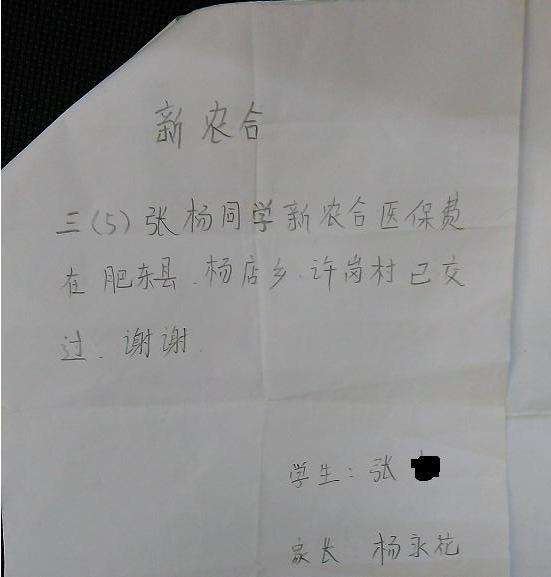 新农合
三(5)张杨同学新农合医保费
在肥东县.杨店乡.许岗村已交
过.谢谢.
学生:张
家长 杨永花